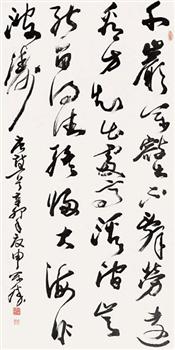 千巖萬壑不辭勞遠
看方知出處高溪澗豈
能留得住終歸大海作
波濤
唐詩